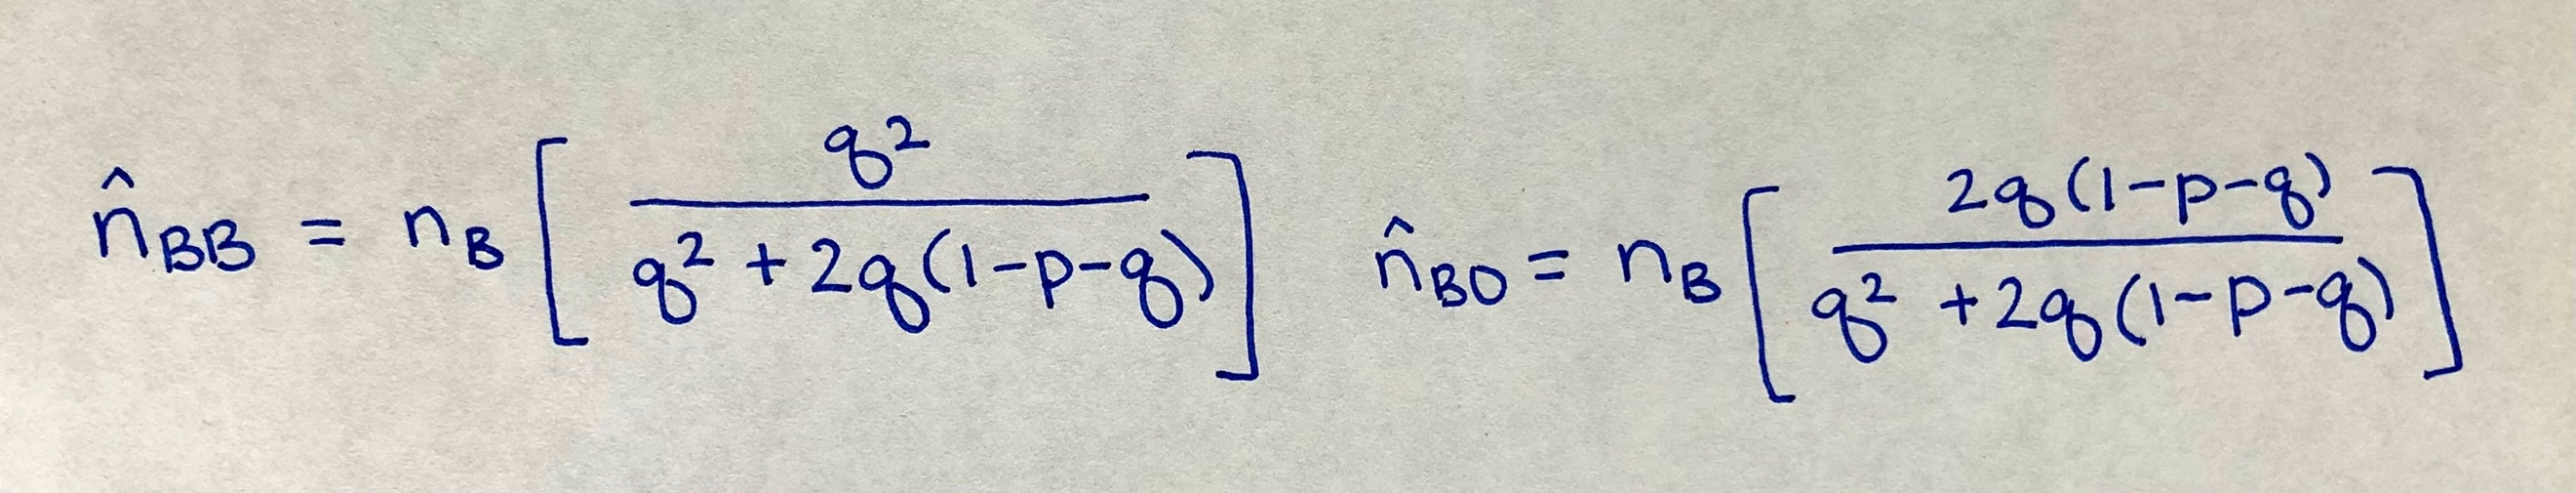 n̂_BB = n_B [ q² / (q² + 2q(1-p-q)) ]   n̂_BO = n_B [ 2q(1-p-q) / (q² + 2q(1-p-q)) ]